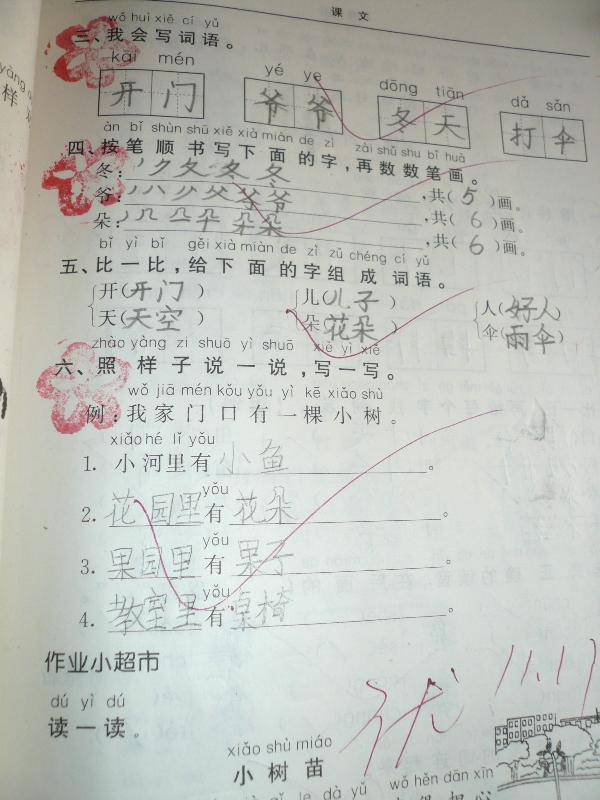 课 文
wǒ huì xiě cí yǔ
三、我会写词语。
kāi mén yé ye dōng tiān dǎ sǎn
开门 爷爷 冬天 打伞
àn bǐ shùn shū xiě xià miàn de zì zài shǔ shu bǐ huà
四、按笔顺书写下面的字,再数数笔画。
冬:丿ク夂冬冬,共(5)画。
爷:,共(6)画。
朵:,共(6)画。
bǐ yì bǐ gěi xià miàn de zì zǔ chéng cí yǔ
五、比一比,给下面的字组成词语。
开(开门) 儿(儿子) 人(好人)
天(天空) 朵(花朵) 伞(雨伞)
zhào yàng zi shuō yì shuō xiě yi xiě
六、照样子说一说,写一写。
wǒ jiā mén kǒu yǒu yì kē xiǎo shù
例:我家门口有一棵小树。
xiǎo hé lǐ yǒu
1. 小河里有小鱼。
yǒu
2. 花园里有花朵。
yǒu
3. 果园里有果子。
yǒu
4. 教室里有桌椅。
作业小超市
优 11.11
dú yì dú
读一读。
xiǎo shù miáo
小树苗
wǒ hěn dān xīn